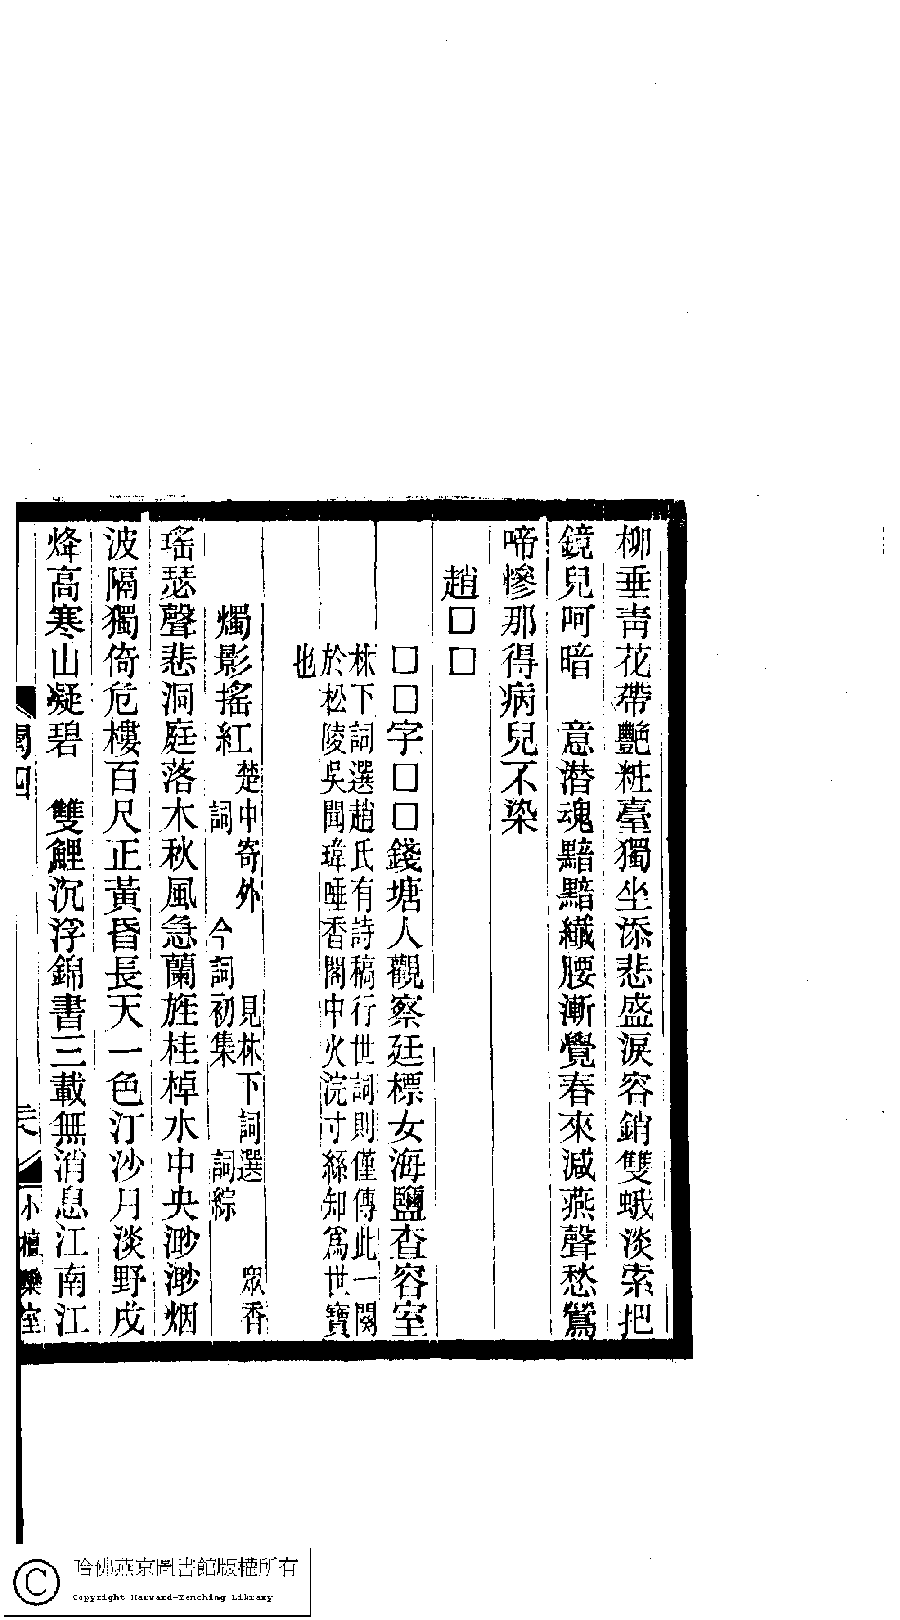 柳垂靑花帶艷粧臺獨坐添悲盛淚容銷雙蛾淡索把
鏡兒呵暗　意潜魂黯黯纎腰漸覺春來減燕聲愁鶯
啼慘那得病兒不染
趙□□
□□字□□錢塘人觀察廷標女海鹽査容室
林下詞選趙氏有詩稿行世詞則僅傳此一闋
於松陵吳聞瑋唾香閣中火浣寸絲知爲世寶
也
燭影搖紅
楚中寄外　見林下詞選　眾香
詞　今詞初集　詞綜
瑶瑟聲悲洞庭落木秋風急蘭旌桂棹水中央渺渺烟
波隔獨倚危樓百尺正黃昏長天一色汀沙月淡野戍
烽高寒山凝碧　雙鯉沉浮錦書三載無消息江南江
閏四
小檀欒室
哈佛燕京圖書館版權所有
Copyright Harvard-Yenching Library